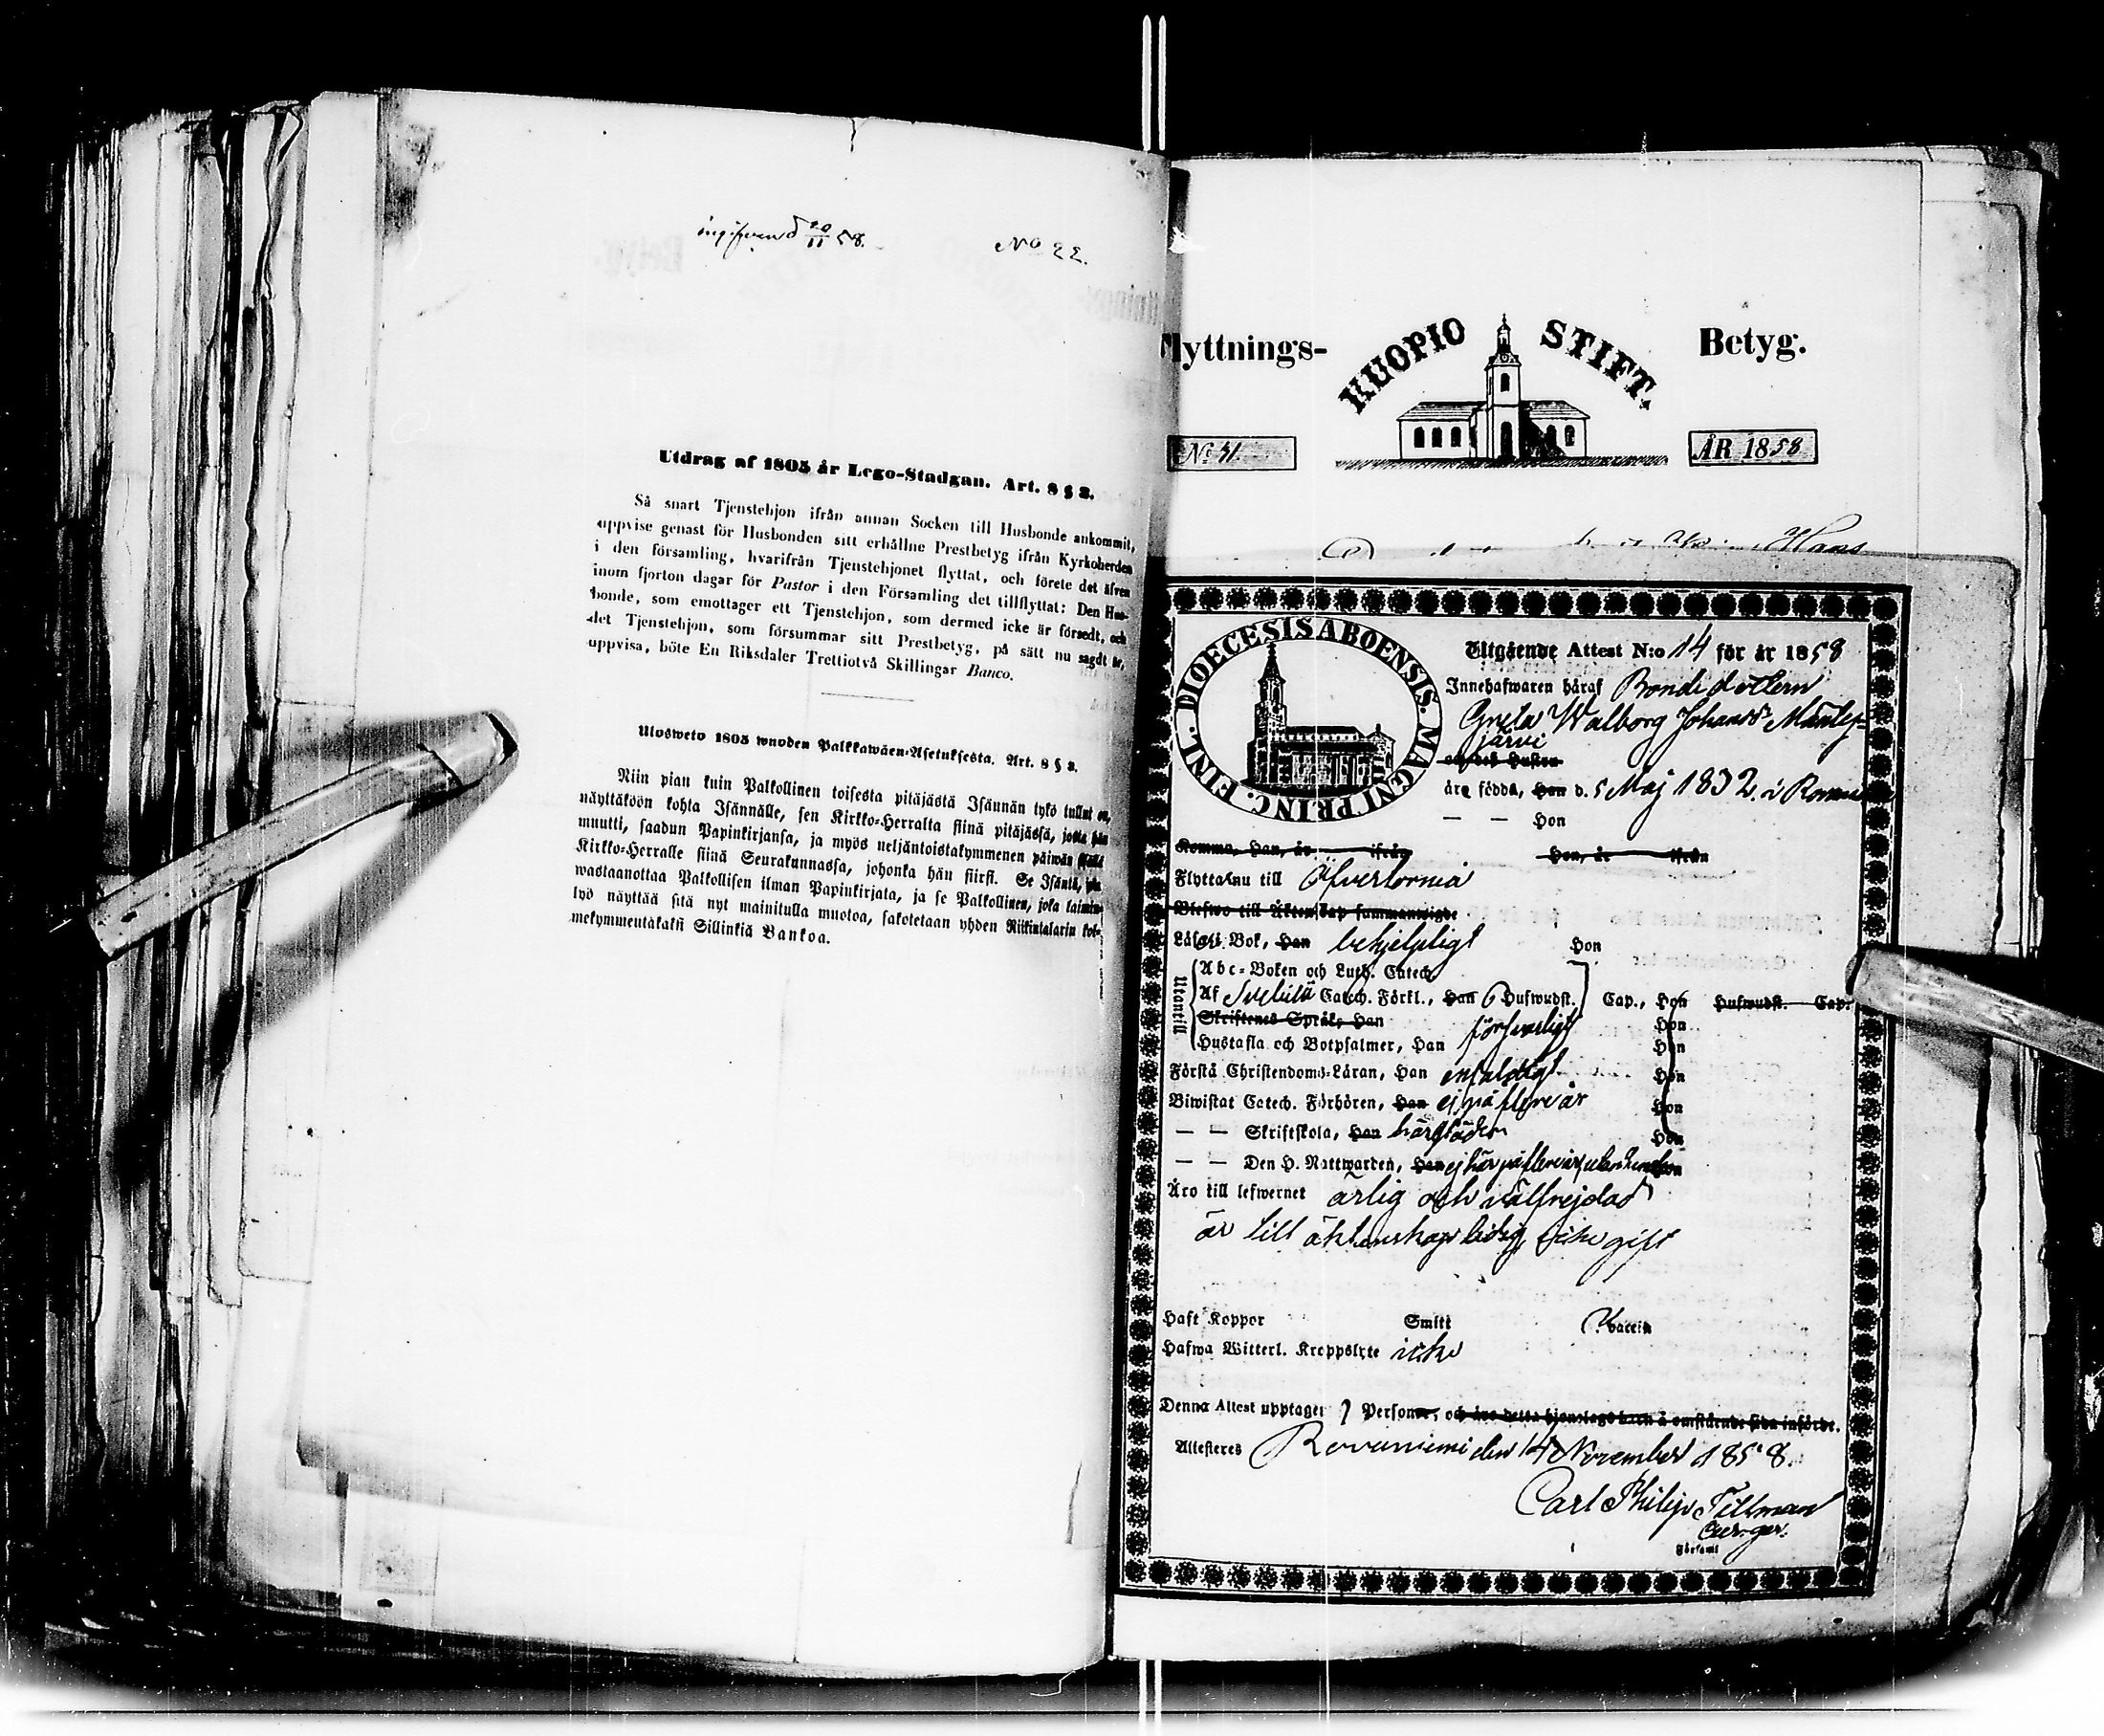 ingifven d 20/11 58.
No 22.
Utdrag af 1805 år Lego-Stadgan. Art. 8 § 3.
Så snart Tjenstehjon ifrån annan Socken till Husbonde ankommit,
uppvise genast för Husbonden sitt erhållne Prestbetyg ifrån Kyrkoherden
i den församling, hvarifrån Tjenstehjonet flyttat, och förete det äfven
inom fjorton dagar för Pastor i den Församling det tillflyttat: Den Hus-
bonde, som emottager ett Tjenstehjon, som dermed icke är försedt, och
det Tjenstehjon, som försummar sitt Prestbetyg, på sätt nu sagdt är,
uppvisa, böte En Riksdaler Trettiotvå Skillingar Banco.
Ulosweto 1805 wuoden Palkkawäen-Asetuksesta. Art. 8 § 3.
Niin pian kuin Palkollinen toisesta pitäjästä Isännän tykö tullut on,
näyttäköön kohta Isännälle, sen Kirkko-Herralta siinä pitäjässä, josta hän
muutti, saadun Papinkirjansa, ja myös neljäntoistakymmenen päiwän sisällä
Kirkko-Herralle siinä Seurakunnassa, johonka hän siirsi. Se Isäntä, joka
wastaanottaa Palkollisen ilman Papinkirjata, ja se Palkollinen, joka laimin-
lyö näyttää sitä nyt mainitulla muotoa, sakotetaan yhden Riikintalarin kol-
mekymmentäkaksi Sillinkiä Bankoa.
Flyttnings- KUOPIO STIFT. Betyg.
No 41. ÅR 1858
Hans
DIOECESIS ABOENSIS. MAGNI PRINC. FINL.
Utgående Attest N:o 14 för år 1858
Innehafwaren häraf Bondedottern
Greta Walborg Johansdr Mäntyjärvi
och dess Hustru
äro födda, Han d. 5 Maj 1832 i
— — Hon
Komma, Han, år ifrån Hon, år ifrån
Flytta nu till Öfvertorneå
Blefwo till Äktenskap sammanwigde
Läsa i Bok, Han behjelpligt Hon
Utantill
Abc-Boken och Luth. Catech.
Af Svebilii Catech. Förkl., Han 6 Hufwudst. Cap., Hon Hufwudst. Cap.
Skriftenes Språk, Han Hon
Hustafla och Botpsalmer, Han försvarligt Hon
Förstå Christendoms-Läran, Han enfaldigt Hon
Biwistat Catech. Förhören, Han ej på flere år Hon
— — Skriftskola, Han Hon
— — Den H. Nattwarden, Han ej här på flere år Hon
Äro till lefwernet ärlig och välfrejdad
är till äktenskap ledig, icke gift
Haft Koppor Smitt Vaccin
Hafwa Witterl. Kroppslyte icke
Denna Attest upptager 1 Personer, och äro detta hjonelags barn å omstående sida införde.
Attesteres Rovaniemi den 14 November 1858.
Carl Philip Tillman
Församl